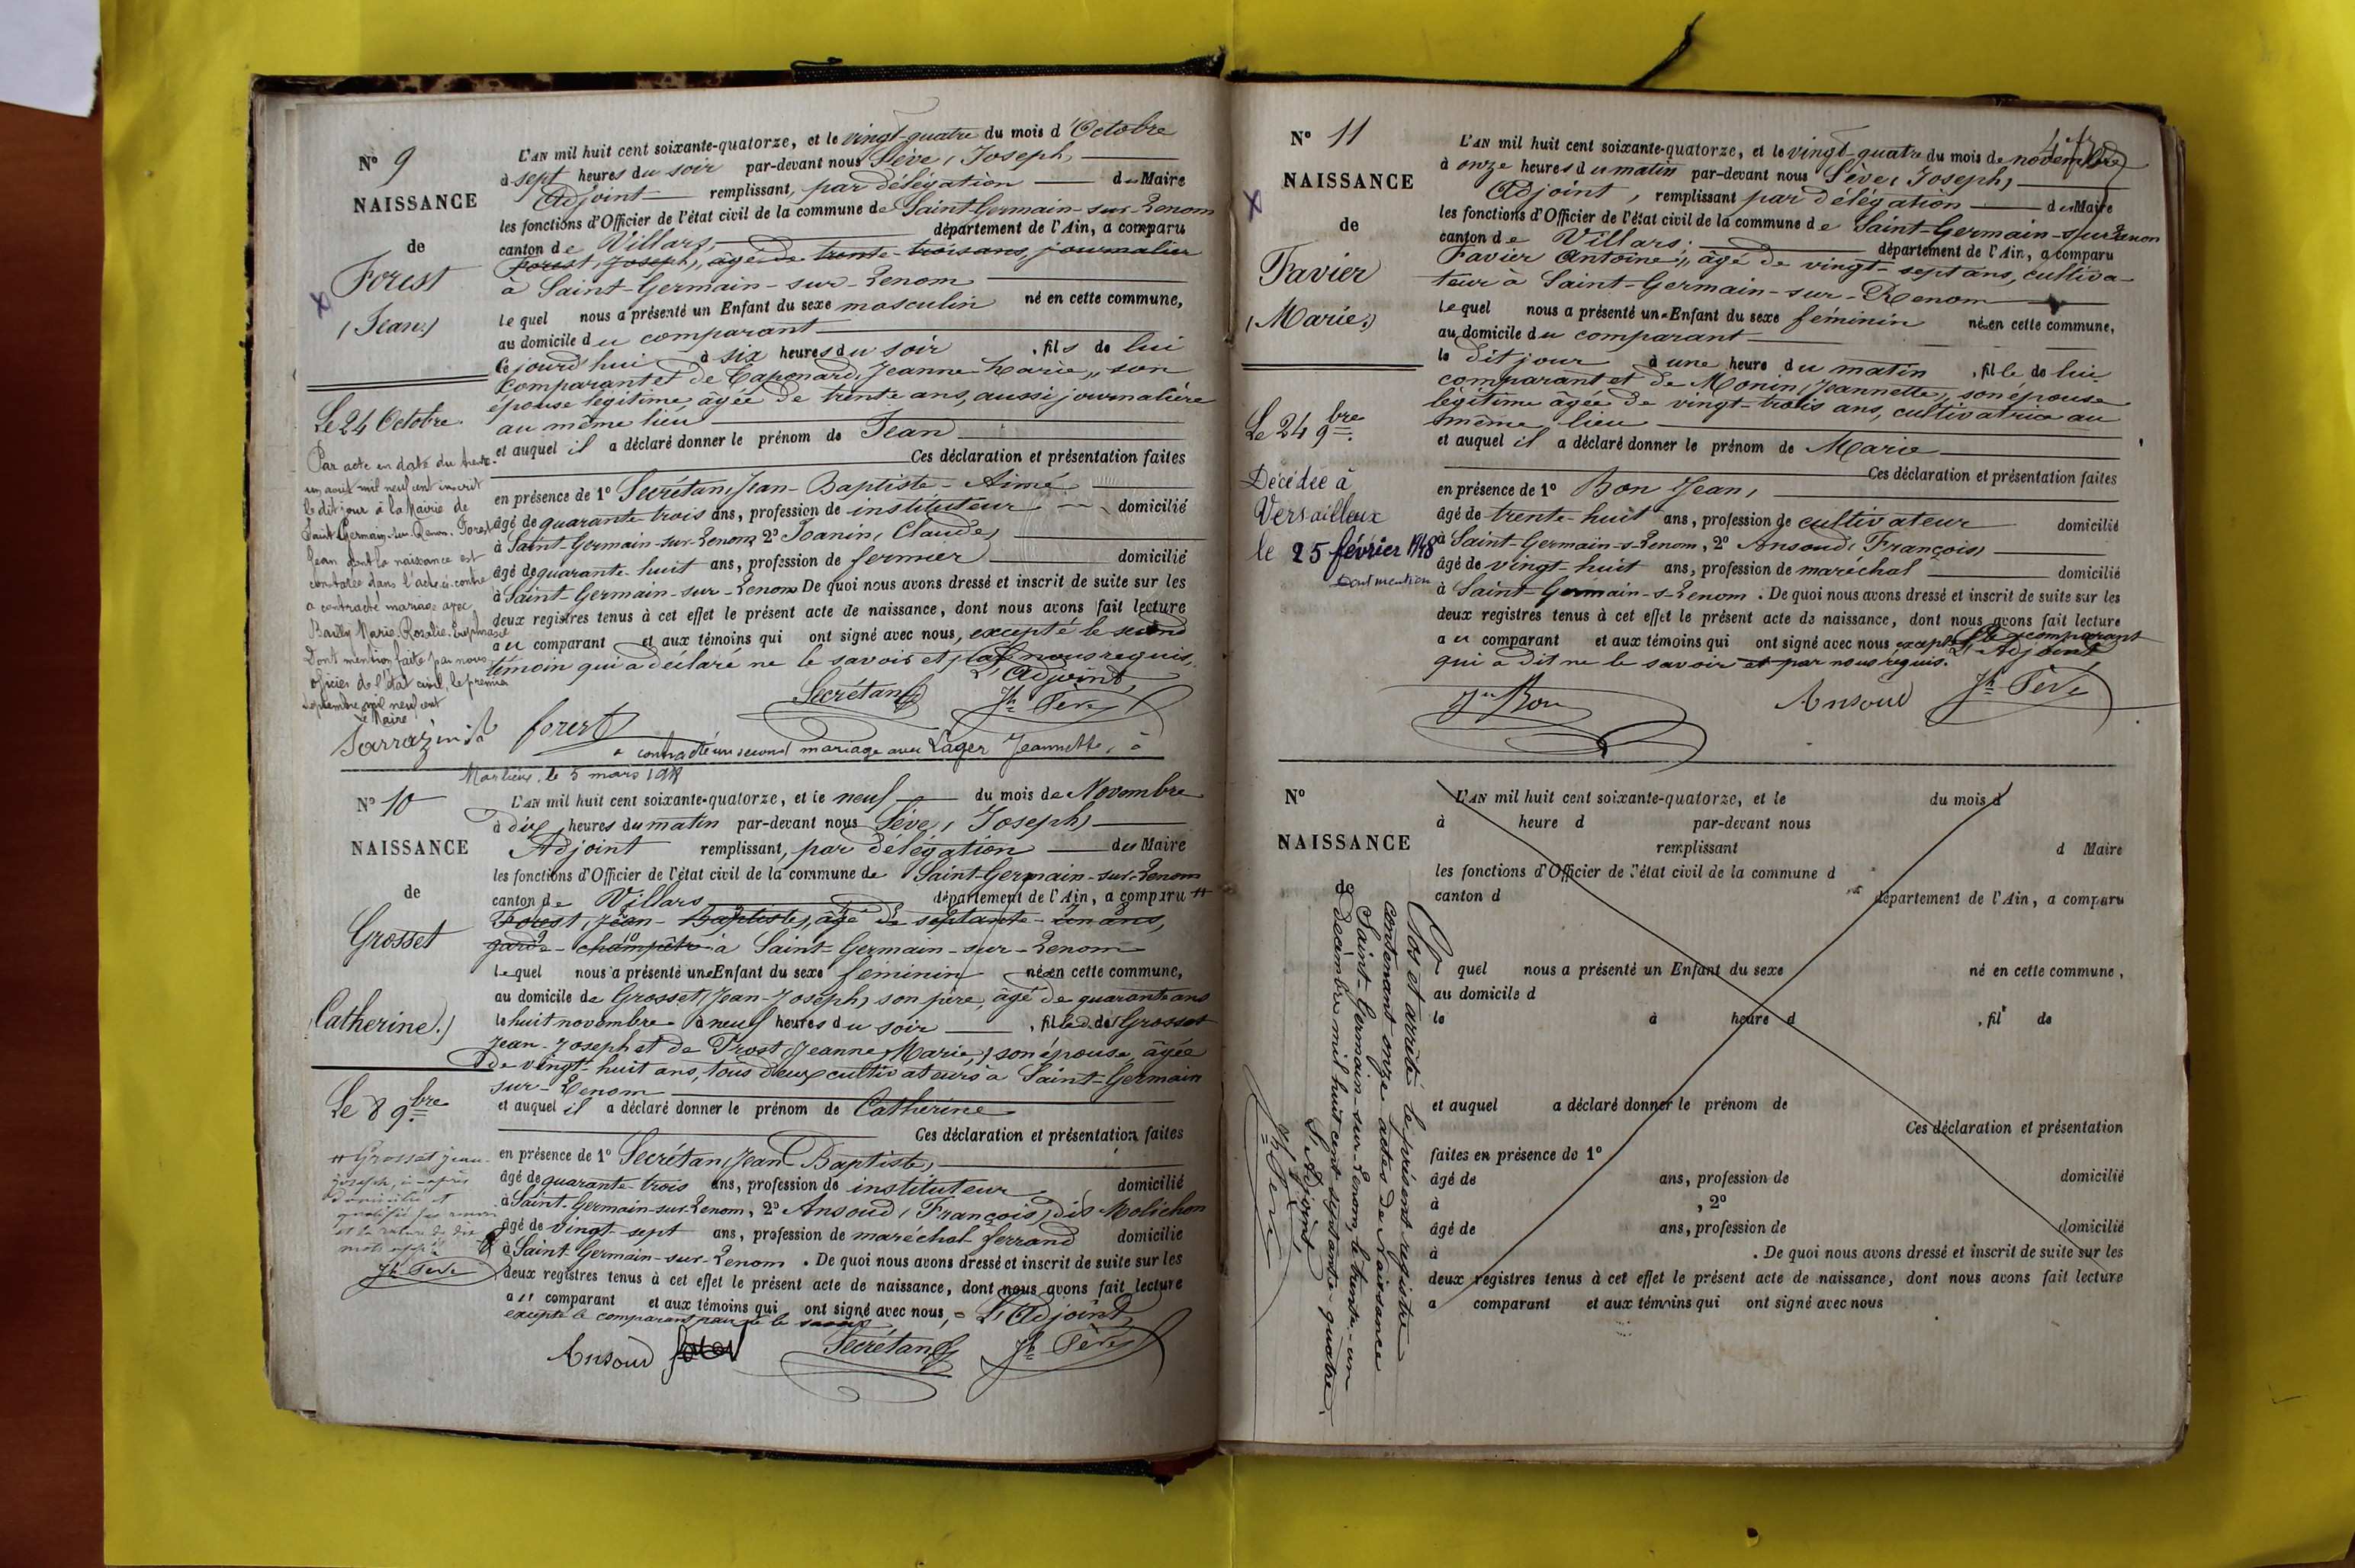 N° 9
NAISSANCE
de
Forest
(Jean)
Le 24 Octobre
Par acte en date du trente
un août mil neuf cent inscrit
le dit jour à la Mairie de
Saint Germain-sur-Renom, Forest
Jean dont la naissance est
constatée dans l'acte ci-contre
a contracté mariage avec
Bailly Marie-Rosalie-Euphrasie
Dont mention faite par nous
officier de l'état civil, le premier
septembre mil neuf cent
Le Maire
Sarrazin
L'AN mil huit cent soixante-quatorze, et le vingt-quatre du mois d'Octobre
à sept heures du soir par-devant nous Sève, (Joseph)
Adjoint remplissant, par délégation du Maire
les fonctions d'Officier de l'état civil de la commune de Saint-Germain-sur-Renom
canton de Villars, département de l'Ain, a comparu
Forest (Joseph), âgé de trente-trois ans, journalier
à Saint-Germain-sur-Renom
lequel nous a présenté un Enfant du sexe masculin né en cette commune,
au domicile du comparant
Ce jourd'hui à six heures du soir, fils de lui
comparant et de Caponard, Jeanne Marie,, son
épouse légitime âgée de trente ans, aussi journalière
au même lieu
et auquel il a déclaré donner le prénom de Jean
Ces déclaration et présentation faites
en présence de 1° Secrétan, Jean-Baptiste-Aimé
âgé de quarante-trois ans, profession de instituteur domicilié
à Saint-Germain-sur-Renom, 2° Joanin, Claude,
âgé de quarante-huit ans, profession de fermier domicilié
à Saint-Germain-sur-Renom De quoi nous avons dressé et inscrit de suite sur les
deux registres tenus à cet effet le présent acte de naissance, dont nous avons fait lecture
au comparant et aux témoins qui ont signé avec nous, excepté le second
témoin qui a déclaré ne le savoir et par nous requis.
L'Adjoint,
Secrétan Jh Sève
forest
a contracté un second mariage avec Lager Jeannette, à
Marlieux, le 5 mars
N° 10
NAISSANCE
de
Grosset
(Catherine.)
Le 8 9bre
# Grosset Jean
Joseph, ci-après
domicilié et
qualifié
Jh Sève
L'AN mil huit cent soixante-quatorze, et le neuf du mois de Novembre
à dix heures du matin par-devant nous Sève, (Joseph)
Adjoint remplissant, par délégation du Maire
les fonctions d'Officier de l'état civil de la commune de Saint-Germain-sur-Renom
canton de Villars département de l'Ain, a comparu #
Forest, Jean-Baptiste, âgé de septante-un ans,
garde-champêtre à Saint-Germain-sur-Renom
lequel nous a présenté une Enfant du sexe féminin née en cette commune,
au domicile de Grosset, Jean-Joseph, son père, âgé de quarante ans
le huit novembre à neuf heures du soir, fille de Grosset
Jean-Joseph et de Prost, Jeanne Marie, son épouse, âgée
de vingt-huit ans, tous deux cultivateurs à Saint-Germain
sur-Renom
et auquel il a déclaré donner le prénom de Catherine
Ces déclaration et présentation faites
en présence de 1° Secrétan, Jean Baptiste,
âgé de quarante-trois ans, profession de instituteur domicilié
à Saint-Germain-sur-Renom, 2° Ansoud, François, dis Molichon
âgé de vingt-sept ans, profession de maréchal ferrand domicilié
à Saint-Germain-sur-Renom. De quoi nous avons dressé et inscrit de suite sur les
deux registres tenus à cet effet le présent acte de naissance, dont nous avons fait lecture
au comparant et aux témoins qui ont signé avec nous, L'Adjoint,
excepté le comparant pour ne le savoir
Ansoud Secrétan Jh Sève
N° 11
NAISSANCE
de
Favier
(Marie.)
Le 24 9bre.
Décédée à
Versailleux
le 25 février 1948
Dont mention
L'AN mil huit cent soixante-quatorze, et le vingt-quatre du mois de novembre
à onze heures du matin par-devant nous Sève, (Joseph),
Adjoint, remplissant par délégation du Maire
les fonctions d'Officier de l'état civil de la commune de Saint-Germain-sur-Renom
canton de Villars. département de l'Ain, a comparu
Favier Antoine,, âgé de vingt-sept ans, cultiva-
teur à Saint-Germain-sur-Renom
lequel nous a présenté une Enfant du sexe féminin née en cette commune,
au domicile du comparant
le dit jour à une heure du matin, fille de lui
comparant et de Monin, Jeannette, son épouse
légitime âgée de vingt-trois ans, cultivatrice au
même lieu
et auquel il a déclaré donner le prénom de Marie
Ces déclaration et présentation faites
en présence de 1° Bon Jean,
âgé de trente-huit ans, profession de cultivateur domicilié
à Saint-Germain-s-Renom, 2° Ansoud, François,
âgé de vingt-huit ans, profession de maréchal domicilié
à Saint-Germain-s-Renom. De quoi nous avons dressé et inscrit de suite sur les
deux registres tenus à cet effet le présent acte de naissance, dont nous avons fait lecture
au comparant et aux témoins qui ont signé avec nous excepté le comparant
qui a dit ne le savoir et par nous requis. L'Adjoint
Jn Bon Ansoud Jh Sève
N°
NAISSANCE
de
L'AN mil huit cent soixante-quatorze, et le du mois d
à heure d par-devant nous
remplissant d Maire
les fonctions d'Officier de l'état civil de la commune d
canton d département de l'Ain, a comparu
quel nous a présenté un Enfant du sexe né en cette commune,
au domicile d
le à heure d , fil de
et auquel a déclaré donner le prénom de
Ces déclaration et présentation
faites en présence de 1°
âgé de ans, profession de domicilié
à , 2°
âgé de ans, profession de domicilié
à . De quoi nous avons dressé et inscrit de suite sur les
deux registres tenus à cet effet le présent acte de naissance, dont nous avons fait lecture
a comparant et aux témoins qui ont signé avec nous
Clos et arrêté le présent registre
contenant onze actes de Naissance
Saint-Germain-sur-Renom, le trente-un
décembre mil huit cent septante-quatre.
L'Adjoint,
Jh Sève